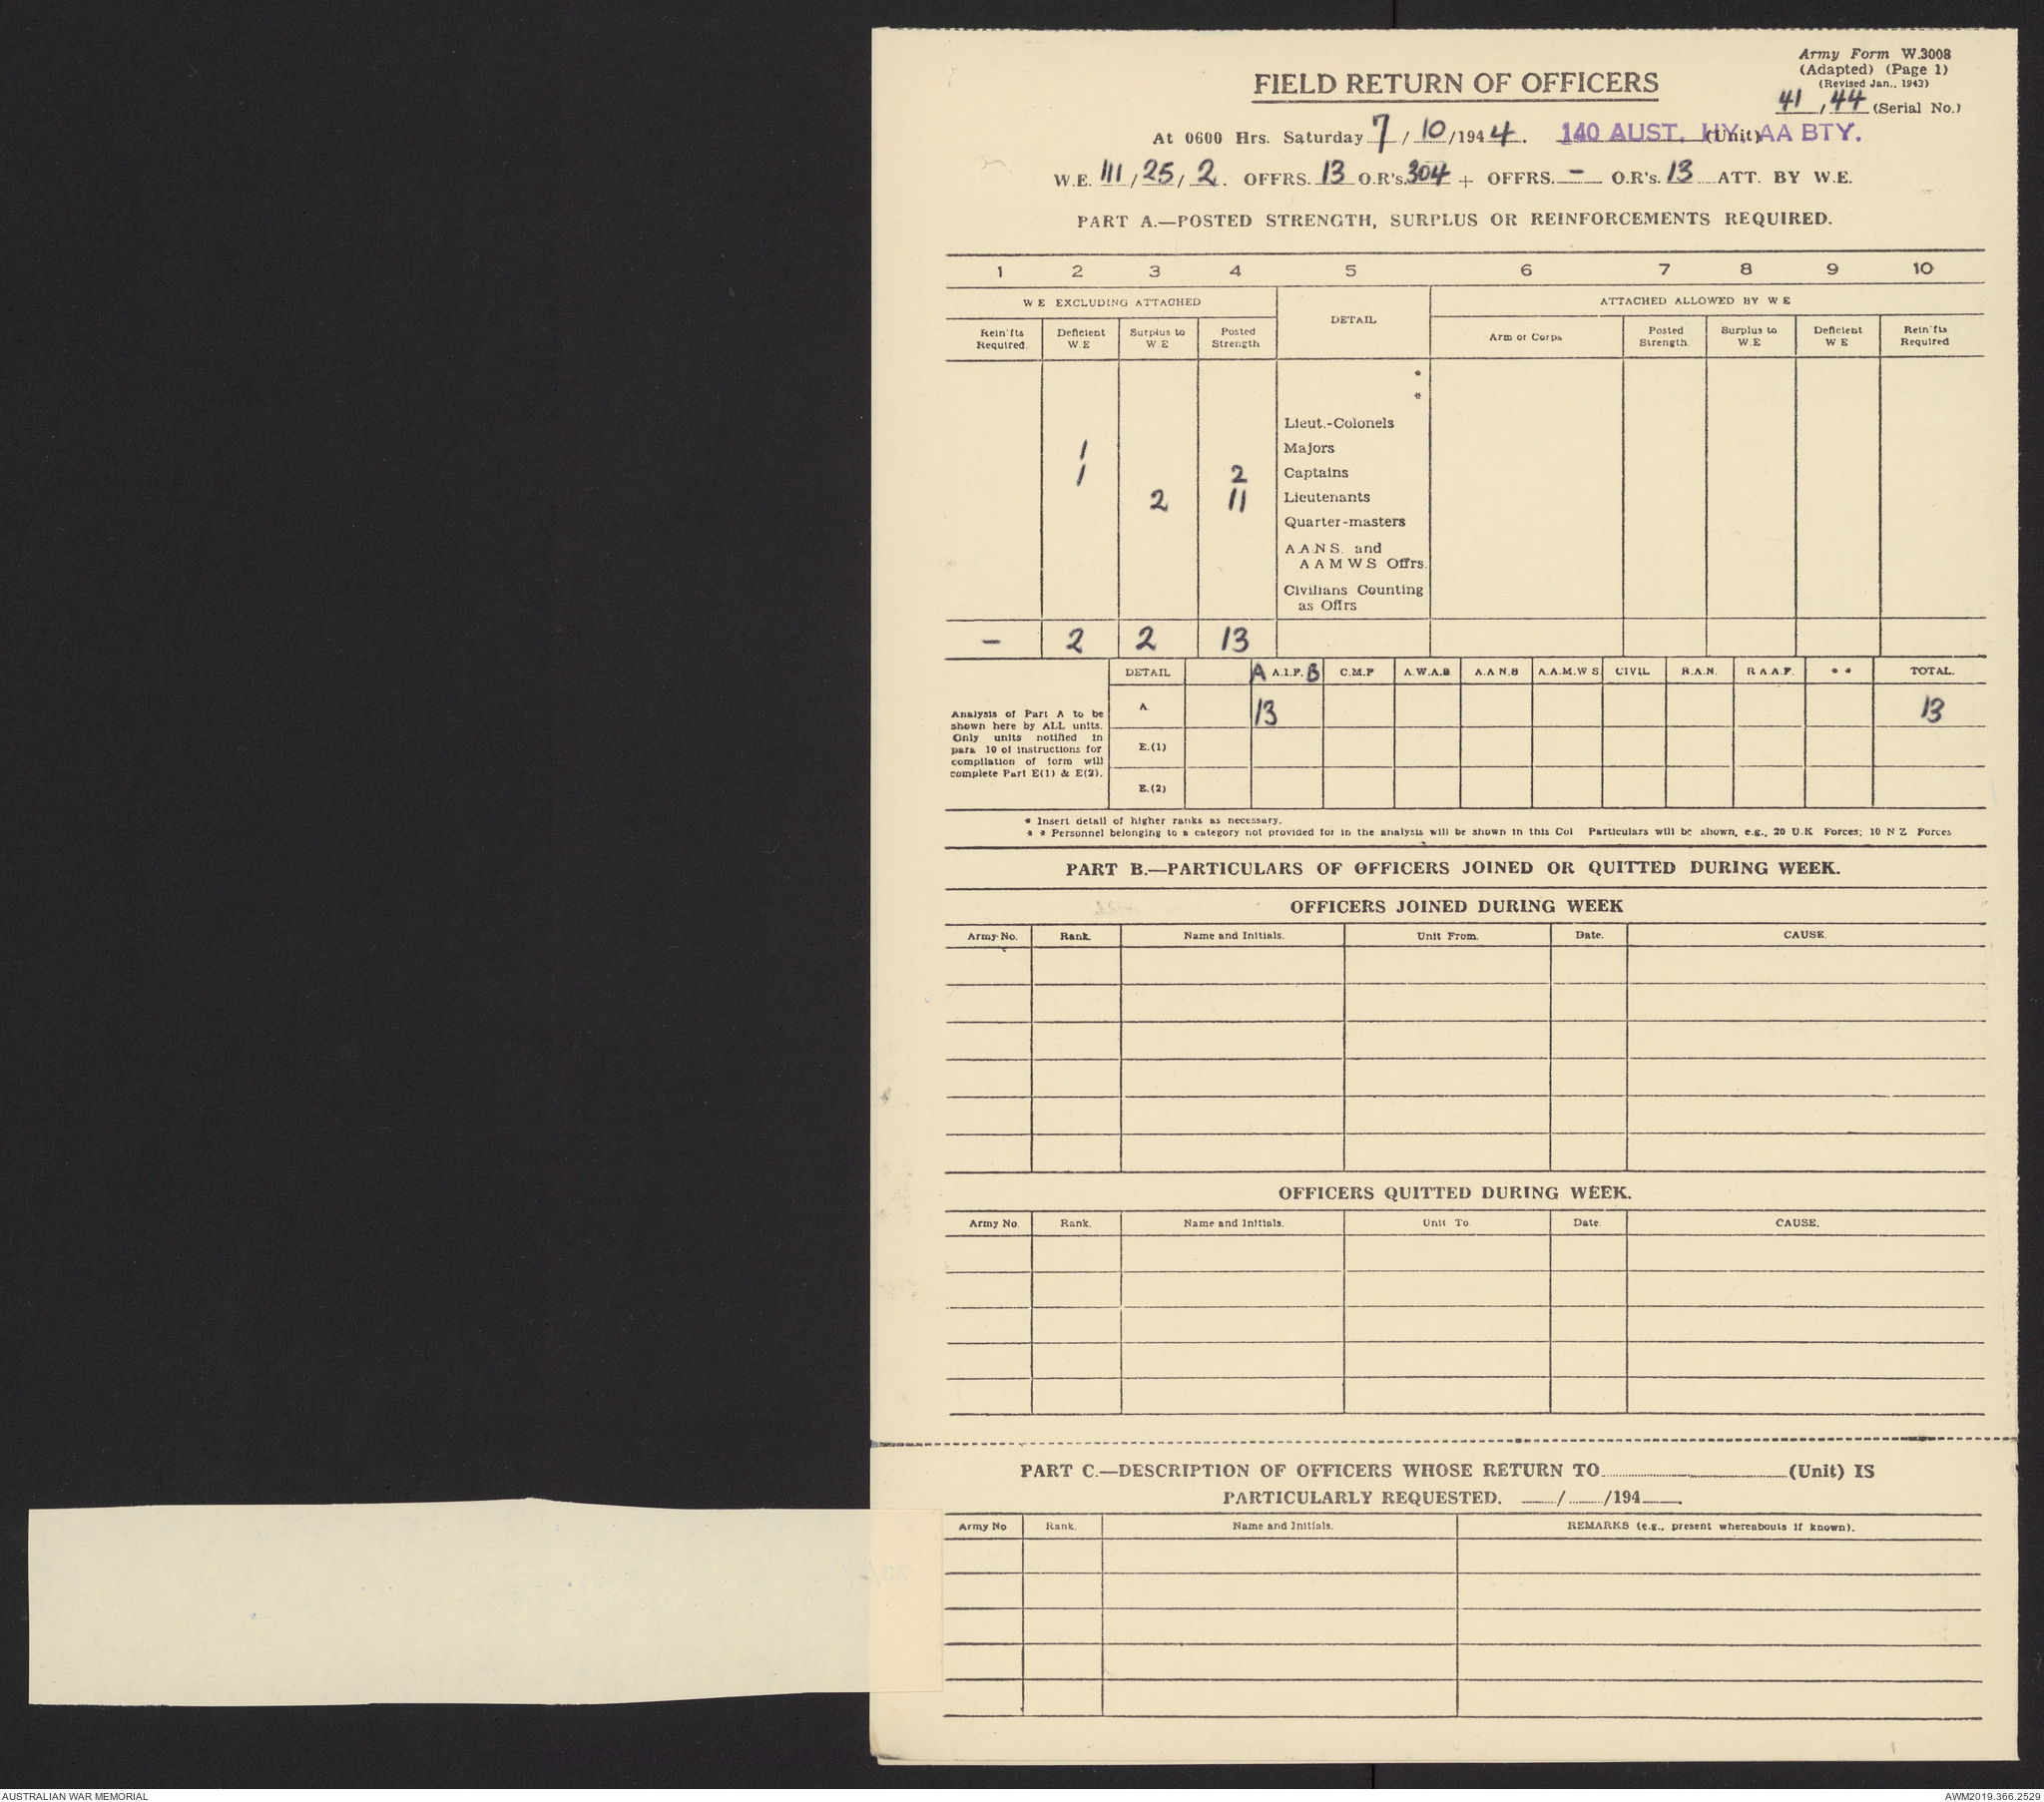 Army Form W.3008
(Adapted) (Page 1)
(Revised Jan., 1943)
41, 44 (Serial No.)
FIELD RETURN OF OFFICERS
At 0600 Hrs. Saturday 7/10/1944. 140 AUST. HY. AA BTY. (Unit)
W.E. 111/25/2. OFFRS. 13 O.R's. 304 + OFFRS. - O.R's. 13 ATT. BY W.E.
PART A.—POSTED STRENGTH, SURPLUS OR REINFORCEMENTS REQUIRED.
1 2 3 4 5 6 7 8 9 10
W E EXCLUDING ATTACHED DETAIL ATTACHED ALLOWED BY W E
Rein'fts Required. Deficient W.E Surplus to W.E Posted Strength Arm or Corps Posted Strength. Surplus to W.E Deficient W E Rein'fts Required
*
*
Lieut.-Colonels
1 Majors
1 2 Captains
2 11 Lieutenants
Quarter-masters
A.A.N.S. and
A A M W S Offrs.
Civilians Counting
as Offrs
- 2 2 13
DETAIL A A.I.F. B C.M.F A.W.A.S A.A N.S A.A.M.W S CIVIL R.A.N. R A A F. * * TOTAL.
Analysis of Part A to be
shown here by ALL units.
Only units notified in
para 10 of instructions for
compilation of form will
complete Part E(1) & E(2).
A. 13 13
E.(1)
E.(2)
* Insert detail of higher ranks as necessary.
* * Personnel belonging to a category not provided for in the analysis will be shown in this Col Particulars will be shown, e.g., 20 U.K Forces; 10 N Z Forces
PART B.—PARTICULARS OF OFFICERS JOINED OR QUITTED DURING WEEK.
OFFICERS JOINED DURING WEEK
Army No. Rank. Name and Initials. Unit From. Date. CAUSE.
OFFICERS QUITTED DURING WEEK.
Army No. Rank. Name and Initials. Unit To. Date. CAUSE.
PART C.—DESCRIPTION OF OFFICERS WHOSE RETURN TO (Unit) IS
PARTICULARLY REQUESTED. / /194 .
Army No Rank. Name and Initials. REMARKS (e.g., present whereabouts if known).
AUSTRALIAN WAR MEMORIAL AWM2019.366.2529